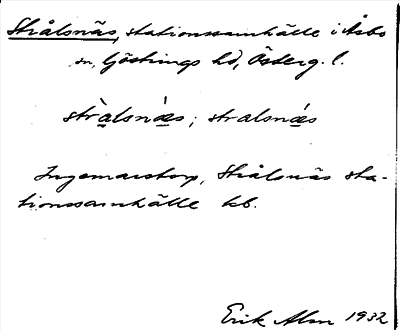 Strålsnäs, stationssamhälle i Åsbo
sn, Göstrings hd, Österg. l.
stràlsnæ̀s; stralsnǽs
Ingemarstorp, Strålsnäs sta-
tionssamhälle kb.
Erik Alm 1932